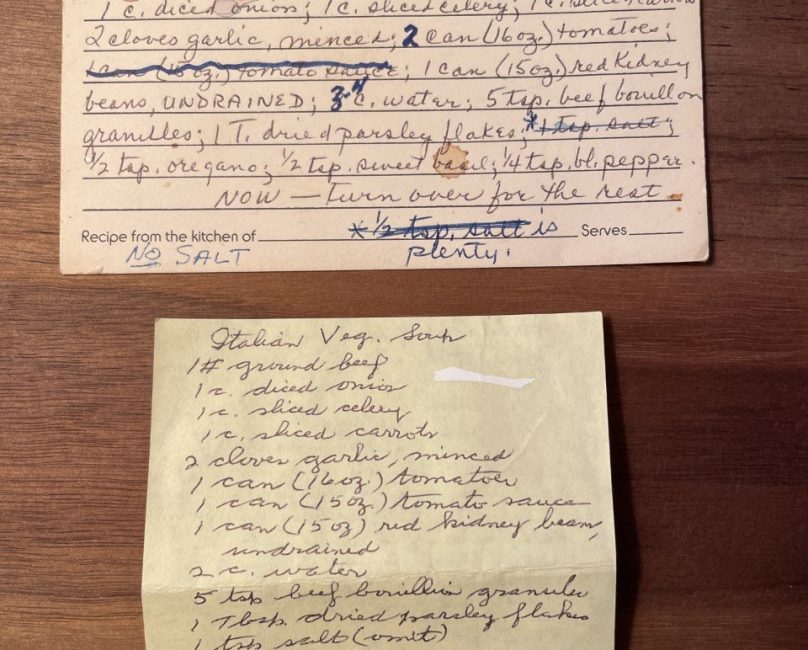 1 c. diced onions; 1 c. sliced celery; 1 c. sliced
2 cloves garlic, minced; 2 can (16 oz.) tomatoes;
1 can (15 oz.) tomato sauce; 1 can (15 oz.) red kidney
beans, UNDRAINED; 3-4 c. water; 5 tsp. beef bouillon
granules; 1 T. dried parsley flakes; * 1 tsp. salt;
½ tsp. oregano; ½ tsp. sweet basil; ¼ tsp. bl. pepper.
NOW — turn over for the rest
Recipe from the kitchen of * ½ tsp. salt is Serves
NO SALT plenty.
Italian Veg. Soup
1# ground beef
1 c. diced onion
1 c. sliced celery
1 c. sliced carrots
2 cloves garlic, minced
1 can (16 oz.) tomatoes
1 can (15 oz.) tomato sauce
1 can (15 oz) red kidney beans,
undrained
2 c. water
5 tsp beef bouillion granules
1 Tbsp. dried parsley flakes
1 tsp salt (omit)